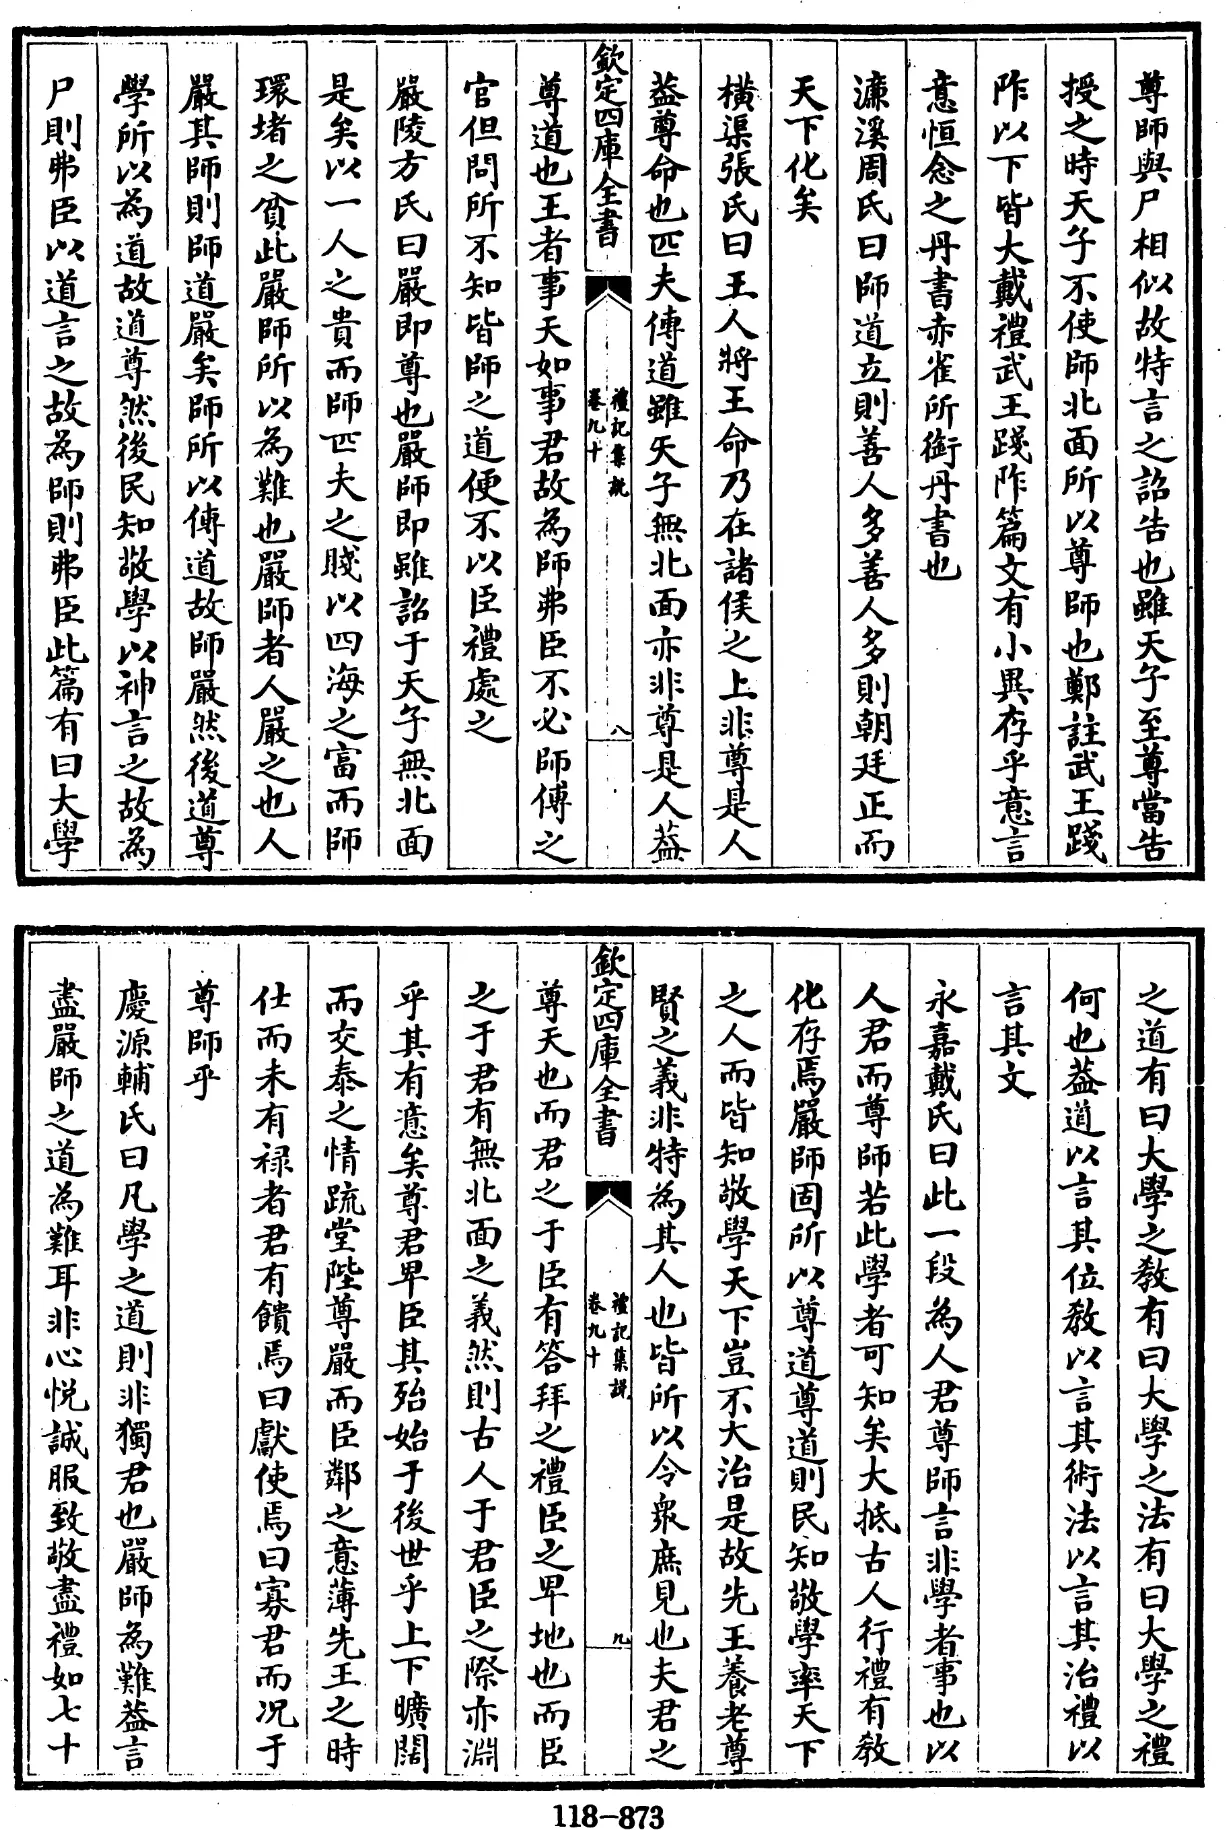 尊師與尸相似故特言之詔告也雖天子至尊當告
授之時天子不使師北面所以尊師也鄭註武王踐
阼以下皆大戴禮武王踐阼篇文有小異存乎意言
意恒念之丹書赤雀所銜丹書也
濂溪周氏曰師道立則善人多善人多則朝廷正而
天下化矣
橫渠張氏曰王人將王命乃在諸侯之上非尊是人
葢尊命也匹夫傳道雖天子無北面亦非尊是人葢
欽定四庫全書
禮記集說
卷九十
八
尊道也王者事天如事君故為師弗臣不必師傅之
官但問所不知皆師之道便不以臣禮處之
嚴陵方氏曰嚴即尊也嚴師即雖詔于天子無北面
是矣以一人之貴而師匹夫之賤以四海之富而師
環堵之貧此嚴師所以為難也嚴師者人嚴之也人
嚴其師則師道嚴矣師所以傳道故師嚴然後道尊
學所以為道故道尊然後民知敬學以神言之故為
尸則弗臣以道言之故為師則弗臣此篇有曰大學
之道有曰大學之教有曰大學之法有曰大學之禮
何也葢道以言其位教以言其術法以言其治禮以
言其文
永嘉戴氏曰此一段為人君尊師言非學者事也以
人君而尊師若此學者可知矣大抵古人行禮有教
化存焉嚴師固所以尊道尊道則民知敬學率天下
之人而皆知敬學天下豈不大治是故先王養老尊
賢之義非特為其人也皆所以令衆庶見也夫君之
欽定四庫全書
禮記集說
卷九十
九
尊天也而君之于臣有答拜之禮臣之卑地也而臣
之于君有無北面之義然則古人于君臣之際亦淵
乎其有意矣尊君卑臣其殆始于後世乎上下曠闊
而交泰之情疏堂陛尊嚴而臣鄰之意薄先王之時
仕而未有禄者君有饋焉曰獻使焉曰寡君而况于
尊師乎
慶源輔氏曰凡學之道則非獨君也嚴師為難葢言
盡嚴師之道為難耳非心悅誠服致敬盡禮如七十
118-873